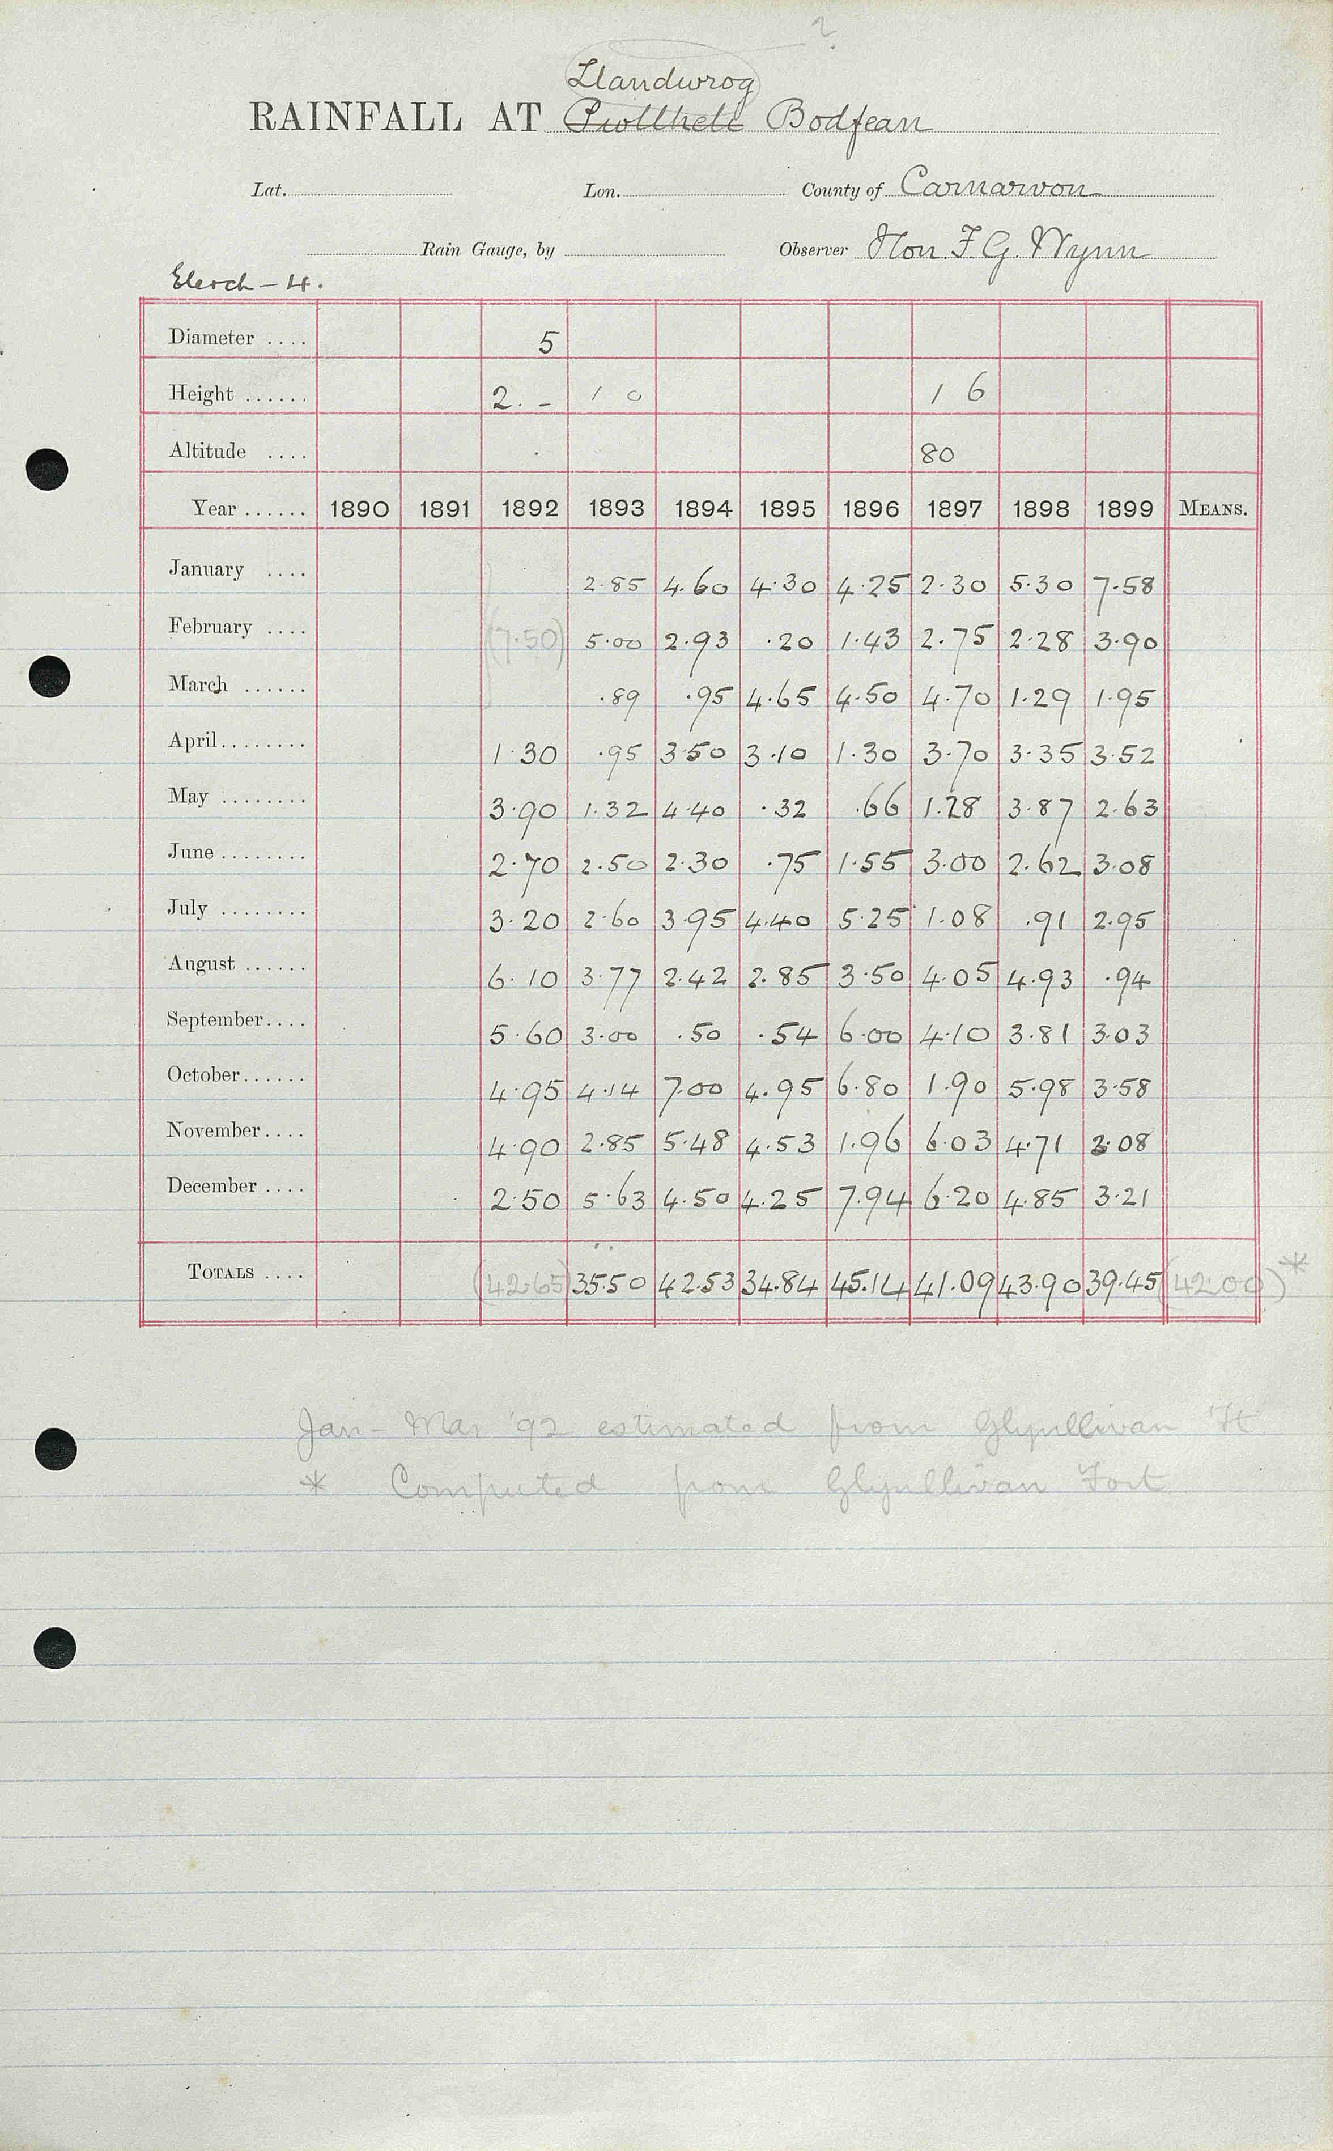 ?
Llandwrog
RAINFALL AT Pwllheli Bodfean
Lat. Lon. County of Carnarvon
Rain Gauge, by Observer Hon F. G. Wynn
Elerch - 4.
Diameter .... 5
Height ...... 2. - 1 0 1 6
Altitude .... 80
Year ...... 1890 1891 1892 1893 1894 1895 1896 1897 1898 1899 MEANS.
January .... 2.85 4.60 4.30 4.25 2.30 5.30 7.58
February .... (7.50) 5.00 2.93 .20 1.43 2.75 2.28 3.90
March ...... .89 .95 4.65 4.50 4.70 1.29 1.95
April........ 1.30 .95 3.50 3.10 1.30 3.70 3.35 3.52
May ........ 3.90 1.32 4.40 .32 .66 1.28 3.87 2.63
June ........ 2.70 2.50 2.30 .75 1.55 3.00 2.62 3.08
July ........ 3.20 2.60 3.95 4.40 5.25 1.08 .91 2.95
August ...... 6.10 3.77 2.42 2.85 3.50 4.05 4.93 .94
September.... 5.60 3.00 .50 .54 6.00 4.10 3.81 3.03
October...... 4.95 4.14 7.00 4.95 6.80 1.90 5.98 3.58
November.... 4.90 2.85 5.48 4.53 1.96 6.03 4.71 3.08
December .... 2.50 5.63 4.50 4.25 7.94 6.20 4.85 3.21
TOTALS .... (42.65) 35.50 42.53 34.84 45.14 41.09 43.90 39.45 (42.00) *
Jan - Mar '92 estimated from Glynllivan Ft
* Computed from Glynllivan Fort